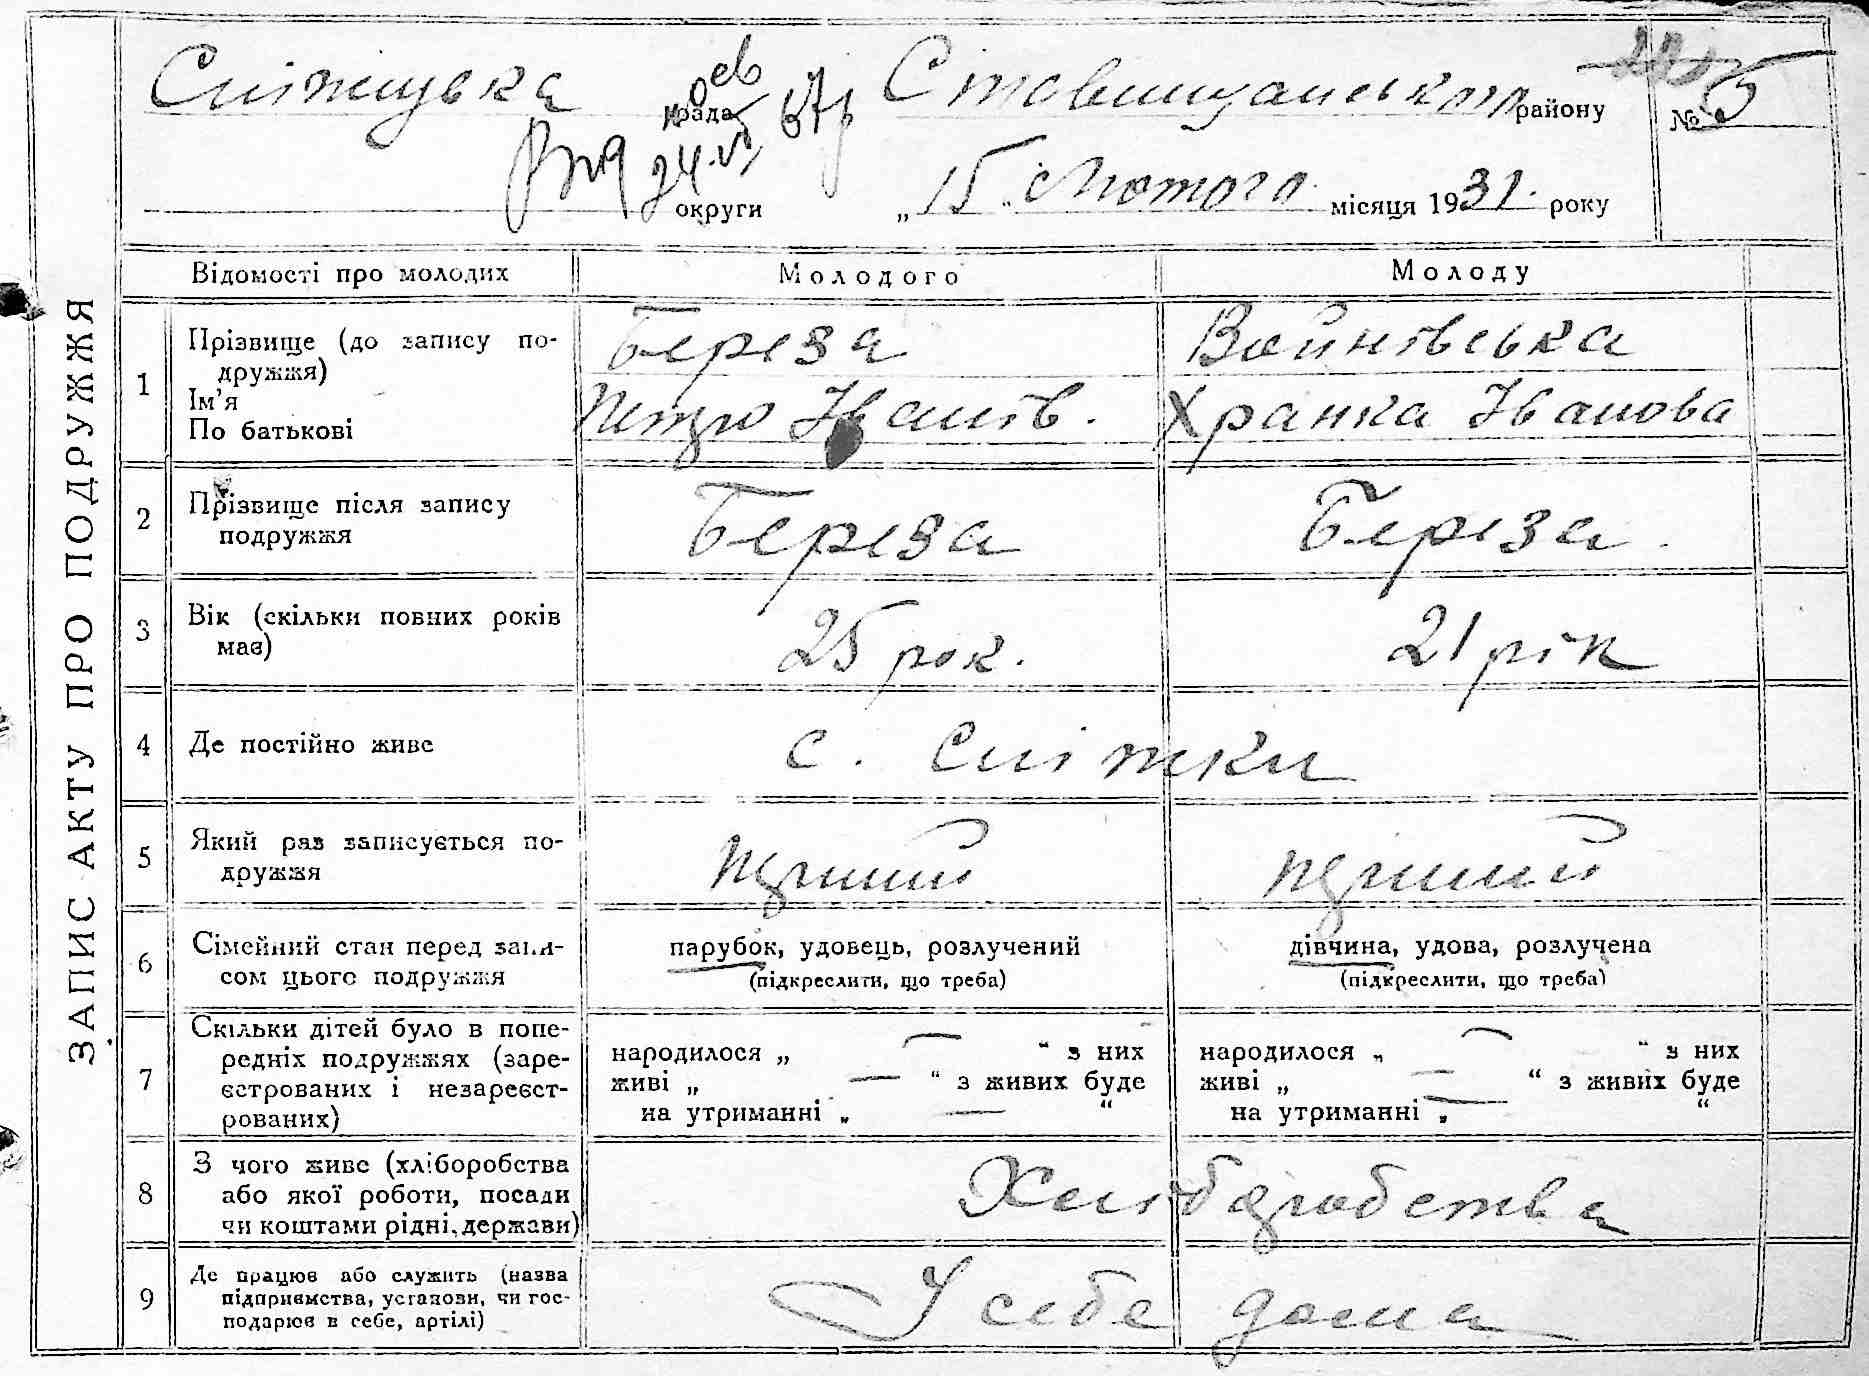 ЗАПИС АКТУ ПРО ПОДРУЖЖЯ
Сніжицька рада Ставищанського району № 5
округи „15" Лютого місяця 1931. року
Відомості про молодих Молодого Молоду
1 Прізвище (до запису по-
дружжя) Береза Войнівська
Ім'я
По батькові Петро Іванів. Хранка Іванова
2 Прізвище після запису
подружжя Береза Береза.
3 Вік (скільки повних років
має) 25 рок. 21 рік
4 Де постійно живе с. Сніжки
5 Який раз записується по-
дружжя перший перший
6 Сімейний стан перед запи-
сом цього подружжя парубок, удовець, розлучений дівчина, удова, розлучена
(підкреслити, що треба) (підкреслити, що треба)
7 Скільки дітей було в попе-
редніх подружжях (заре-
єстрованих і незареєст-
рованих) народилося „ — " з них народилося „ — " з них
живі „ — " з живих буде живі „ — " з живих буде
на утриманні „ — " на утриманні „ — "
8 З чого живе (хліборобства
або якої роботи, посади
чи коштами рідні, держави) Хліборобства
9 Де працює або служить (назва
підприємства, установи, чи гос-
подарює в себе, артілі) У себе дома